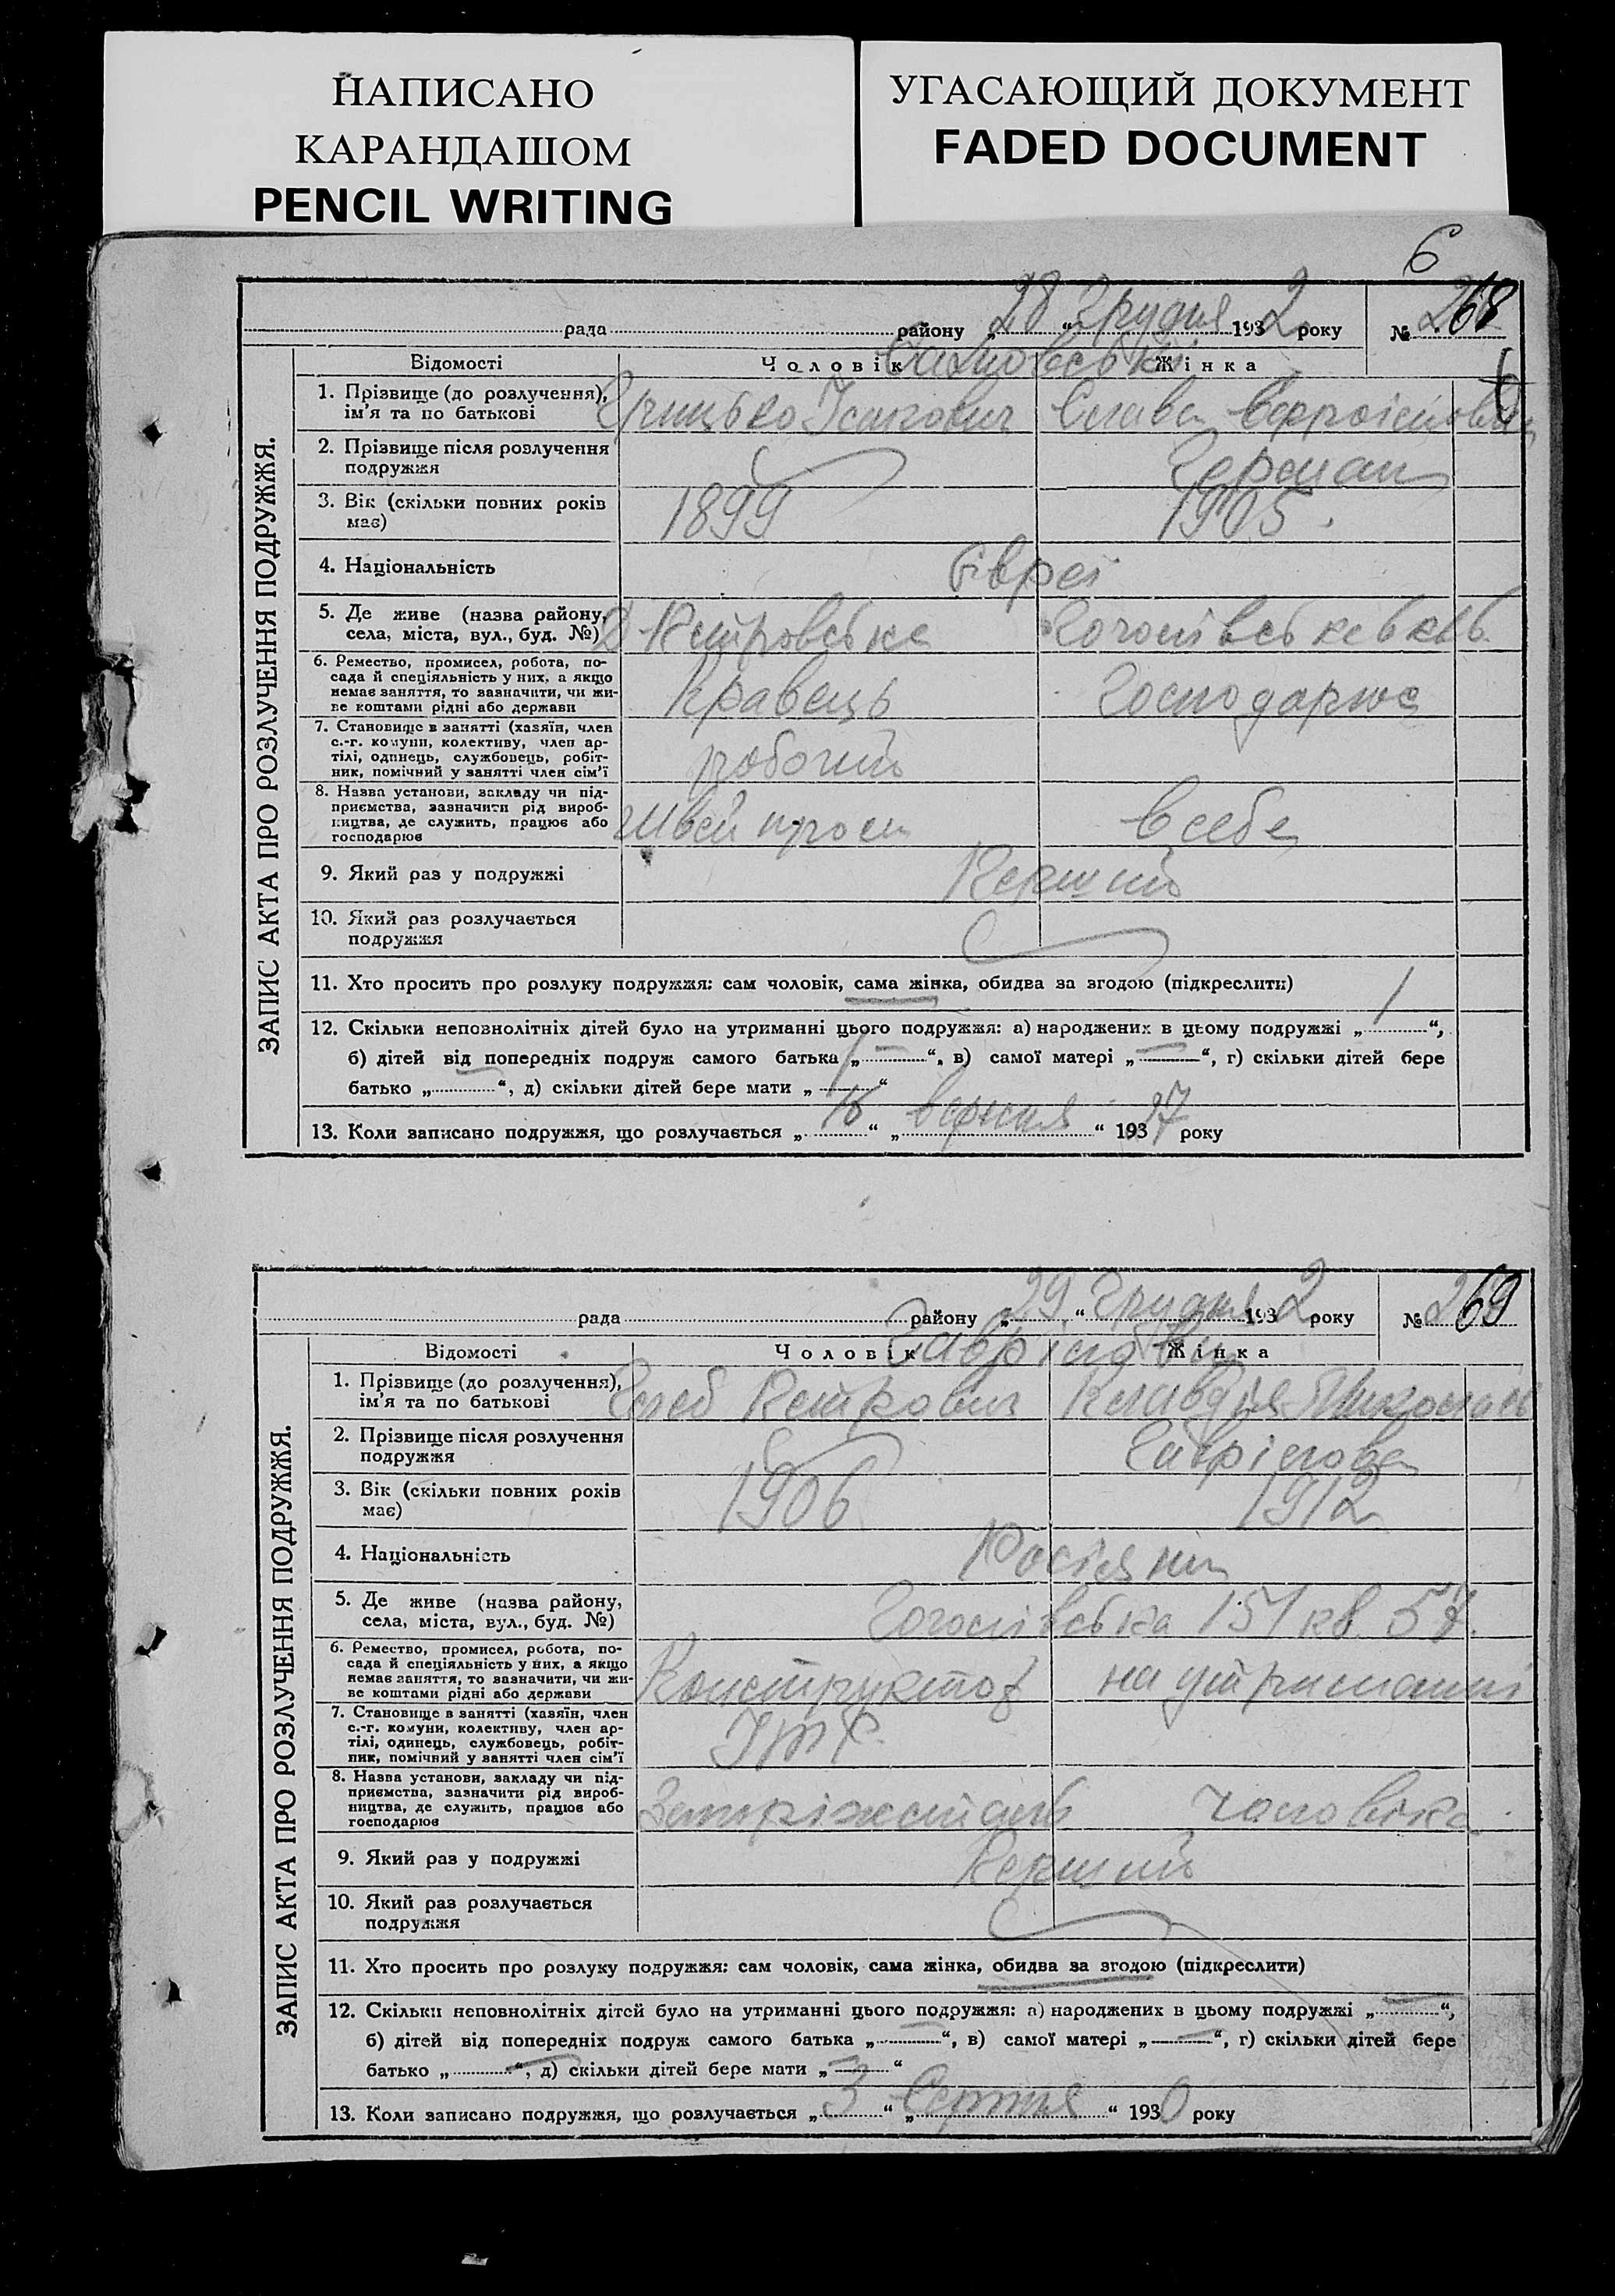 НАПИСАНО
КАРАНДАШОМ
PENCIL WRITING
УГАСАЮЩИЙ ДОКУМЕНТ
FADED DOCUMENT
6
рада района „28“ Грудня 1932 року № 268
Відомості Чоловік Жінка
ЗАПИС АКТА ПРО РОЗЛУЧЕННЯ ПОДРУЖЖЯ.
1. Прізвище (до розлучення),
ім'я та по батькові
Грицько Ісакович
2. Прізвище після розлучення
подружжя
Герман
3. Вік (скільки повних років
має)
1899 1905
4. Національність
Євреї
5. Де живе (назва району,
села, міста, вул., буд. №)
Петровська
6. Ремество, промисел, робота, по-
сада й спеціяльність у них, а якщо
немає заняття, то зазначити, чи жи-
ве коштами рідні або держави
Кравець Господарює
7. Становище в занятті (хазяїн, член
с.-г. комуни, колективу, член ар-
тілі, одинець, службовець, робіт-
ник, помічний у занятті член сім'ї
робочий
8. Назва установи, закладу чи під-
приємства, зазначити рід вироб-
ництва, де служить, працює або
господарює
Швейпром в себе
9. Який раз у подружжі
Перший
10. Який раз розлучається
подружжя
11. Хто просить про розлуку подружжя: сам чоловік, сама жінка, обидва за згодою (підкреслити)
12. Скільки неповнолітніх дітей було на утриманні цього подружжя: а) народжених в цьому подружжі „ 1 “,
б) дітей від попередніх подруж самого батька „ — “, в) самої матері „ — “, г) скільки дітей бере
батько „ — “, д) скільки дітей бере мати „ 1 “
13. Коли записано подружжя, що розлучається „16“ „вересня“ 193 27 року
рада району „29“ Грудня 1932 року № 269
Відомості Чоловік Жінка
ЗАПИС АКТА ПРО РОЗЛУЧЕННЯ ПОДРУЖЖЯ.
1. Прізвище (до розлучення),
ім'я та по батькові
Глеб Петрович Клавдія
2. Прізвище після розлучення
подружжя
Гаврілова
3. Вік (скільки повних років
має)
1906 1912
4. Національність
Росіяни
5. Де живе (назва району,
села, міста, вул., буд. №)
Гоголівська 151 кв. 57.
6. Ремество, промисел, робота, по-
сада й спеціяльність у них, а якщо
немає заняття, то зазначити, чи жи-
ве коштами рідні або держави
Конструктор на утриманні
7. Становище в занятті (хазяїн, член
с.-г. комуни, колективу, член ар-
тілі, одинець, службовець, робіт-
ник, помічний у занятті член сім'ї
ІТР
8. Назва установи, закладу чи під-
приємства, зазначити рід вироб-
ництва, де служить, працює або
господарює
Запоріжсталь чоловіка
9. Який раз у подружжі
Перший
10. Який раз розлучається
подружжя
11. Хто просить про розлуку подружжя: сам чоловік, сама жінка, обидва за згодою (підкреслити)
12. Скільки неповнолітніх дітей було на утриманні цього подружжя: а) народжених в цьому подружжі „ — “,
б) дітей від попередніх подруж самого батька „ — “, в) самої матері „ — “, г) скільки дітей бере
батько „ — “, д) скільки дітей бере мати „ — “
13. Коли записано подружжя, що розлучається „3“ „Серпня“ 1930 року